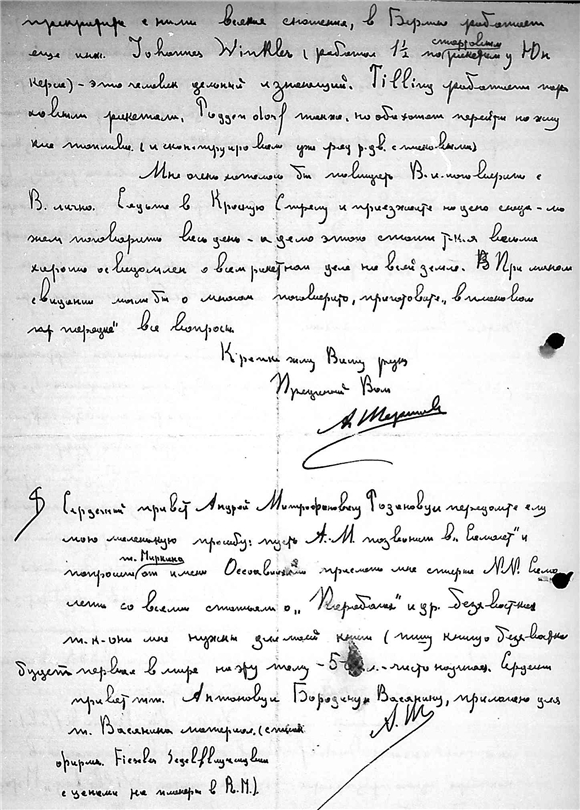 прекратив с ними всякие сношения, в Берлине работает
еще инж. Johannes Winkler (работал 1½ по стартовым ракетам у Юн
керса) - это человек дельный и знающий. Tilling работает поро
ховыми ракетами, Poggendorf также, но оба хотят перейти на жид
кие топлива. (и сконструировали уже ряд р.дв. с таковыми)
Мне очень хотелось бы повидать В. и поговорить с
В. лично. Сядьте в Красную Стрелу и приезжайте на день сюда - мо
жем поговорить весь день - а дело этого стоит т-к-я весьма
хорошо осведомлен о всем ракетном деле на всей земле. При личном
свидании могли бы о многом поговорить, приготовьте, в плановом
порядке" все вопросы
Крепко жму Вашу руку
Преданный Вам
А. Шершев
Сердечный привет Андрей Митрофановичу
передайте ему
мою маленькую просьбу: пусть А.М. позвонит в „Самолет" и
т. Миркина
попросит от имени Осоавиахим прислать мне старые N.N. Само
лета со всеми статьями о „Параболе" и др. безхвостках
т.к-они мне нужны для моей книги (пишу книгу о безхвостках
будет первая в мире на эту тему - 5 - чисто научная. Сердечн
привет тт. Антоновуи Бородину и Васянину, прилагаю для
А. Ш
т. Васянина материал. (
фирма. Fieseler Segelflugzeugbau
с ценами на планеры в R.M.).